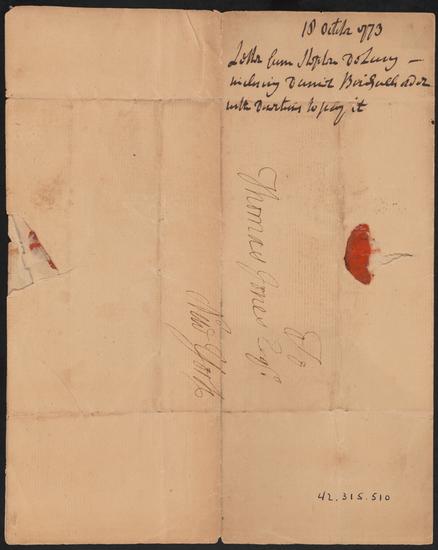 18 Octbr 1773
Letter from Stephn DeLancy —
inclosing Daniel Birdsall order
with Directions to pay it
To
Thomas Jones Esqr.
New York
42.315.510